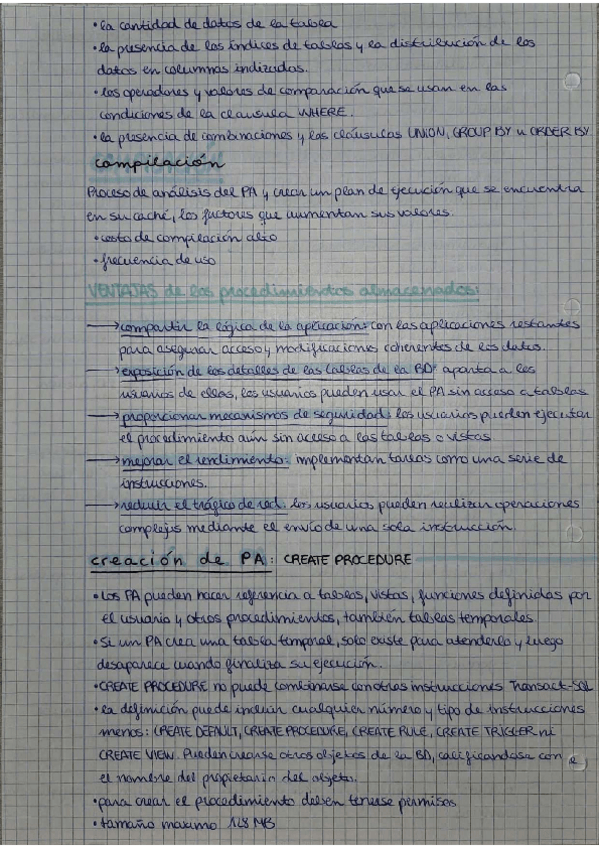 • la cantidad de datos de la tabla
• la presencia de los índices de tablas y la distribución de los
datos en columnas indizadas.
• los operadores y valores de comparación que se usan en las
condiciones de la clausula WHERE.
• la presencia de combinaciones y las cláusulas UNION, GROUP BY u ORDER BY
compilación
Proceso de análisis del PA y crear un plan de ejecución que se encuentra
en su caché, los factores que aumentan sus valores.
• costo de compilación alto
• frecuencia de uso
VENTAJAS de los procedimientos almacenados:
→ compartir la lógica de la aplicación: con las aplicaciones restantes
para asegurar acceso y modificaciones coherentes de los datos.
→ exposición de los detalles de las tablas de la BD: aparta a los
usuarios de ellas, los usuarios pueden usar el PA sin acceso a tablas
→ proporcionar mecanismos de seguridad: los usuarios pueden ejecutar
el procedimiento aún sin acceso a las tablas o vistas
→ mejorar el rendimiento: implementan tareas como una serie de
instrucciones.
→ reducir el tráfico de red: los usuarios pueden realizar operaciones
complejas mediante el envío de una sola instrucción.
creación de PA: CREATE PROCEDURE
• Los PA pueden hacer referencia a tablas, vistas, funciones definidas por
el usuario y otros procedimientos, también tablas temporales
• Si un PA crea una tabla temporal, solo existe para atenderlo y luego
desaparece cuando finaliza su ejecución.
• CREATE PROCEDURE no puede combinarse con otras instrucciones Transact-SQL
• la definición puede incluir cualquier número y tipo de instrucciones
menos: CREATE DEFAULT, CREATE PROCEDURE, CREATE RULE, CREATE TRIGGER ni
CREATE VIEW. Pueden crearse otros objetos de la BD, calificandose con
el nombre del propietario del objeto.
• para crear el procedimiento deben tenerse permisos
• tamaño maximo 128 MB